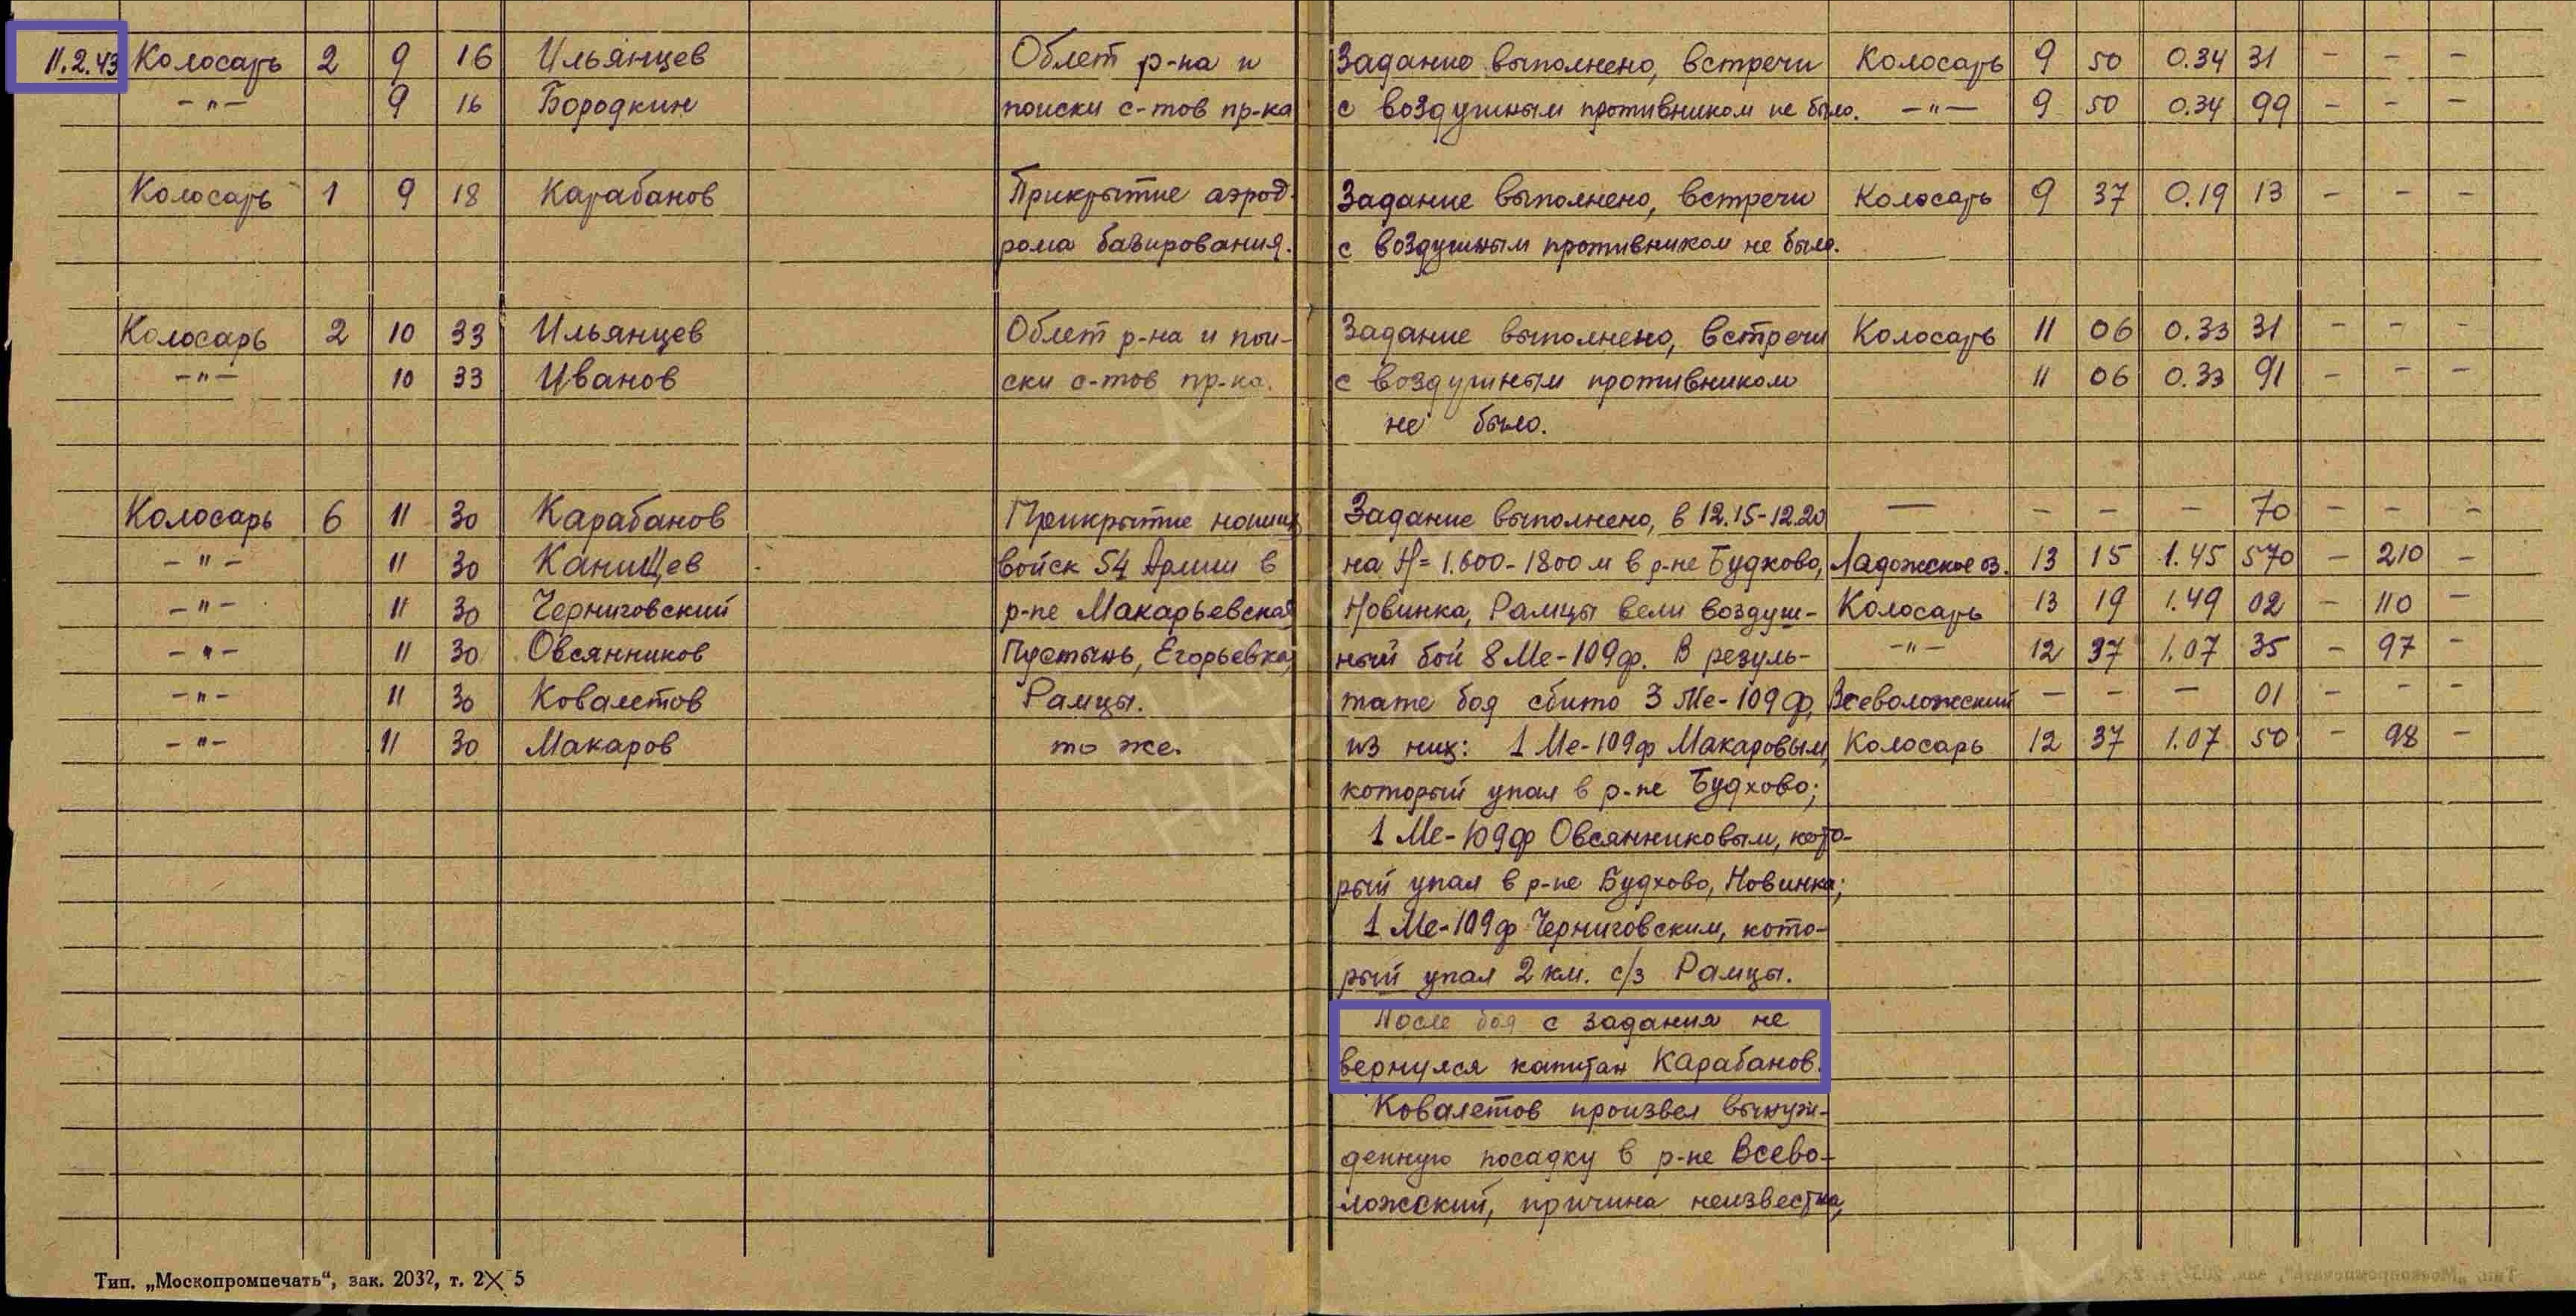 11.2.43 Колосарь 2 9 16 Ильянцев Облет р-на и Задание выполнено, встречи Колосарь 9 50 0.34 31 - - -
-"- 9 16 Бородкин поиски с-тов пр-ка с воздушным противником не было. -"- 9 50 0.34 99 - - -
Колосарь 1 9 18 Карабанов Прикрытие аэрод- Задание выполнено, встречи Колосарь 9 37 0.19 13 - - -
рома базирования. с воздушным противником не было.
Колосарь 2 10 33 Ильянцев Облет р-на и пои- Задание выполнено, встречи Колосарь 11 06 0.33 31 - - -
-"- 10 33 Иванов ски с-тов пр-ка. с воздушным противником 11 06 0.33 91 - - -
не было.
Колосарь 6 11 30 Карабанов Прикрытие наших Задание выполнено, в 12.15-12.20 — - - - 70 - - -
-"- 11 30 Канищев войск 54 Армии в на Н= 1.600-1800 м в р-не Будково, Ладожское оз. 13 15 1.45 570 - 210 -
-"- 11 30 Черниговский р-не Макарьевская Новинка, Рамцы вели воздуш- Колосарь 13 19 1.49 02 - 110 -
-"- 11 30 Овсянников Пустынь, Егорьевка, ный бой 8 Ме-109ф. В резуль- -"- 12 37 1.07 35 - 97 -
-"- 11 30 Ковалетов Рамцы. тате боя сбито 3 Ме-109ф, Всеволожский - - - 01 - - -
-"- 11 30 Макаров то же. из них: 1 Ме-109ф Макаровым, Колосарь 12 37 1.07 50 - 98 -
который упал в р-не Будхово;
1 Ме-109ф Овсянниковым, кото-
рый упал в р-не Будхово, Новинка;
1 Ме-109ф Черниговским, кото-
рый упал 2 км. с/з Рамцы.
После боя с задания не
вернулся капитан Карабанов.
Ковалетов произвел вынуж-
денную посадку в р-не Всево-
ложский, причина неизвестна,
Тип. „Москопромпечать“, зак. 2032, т. 2X5